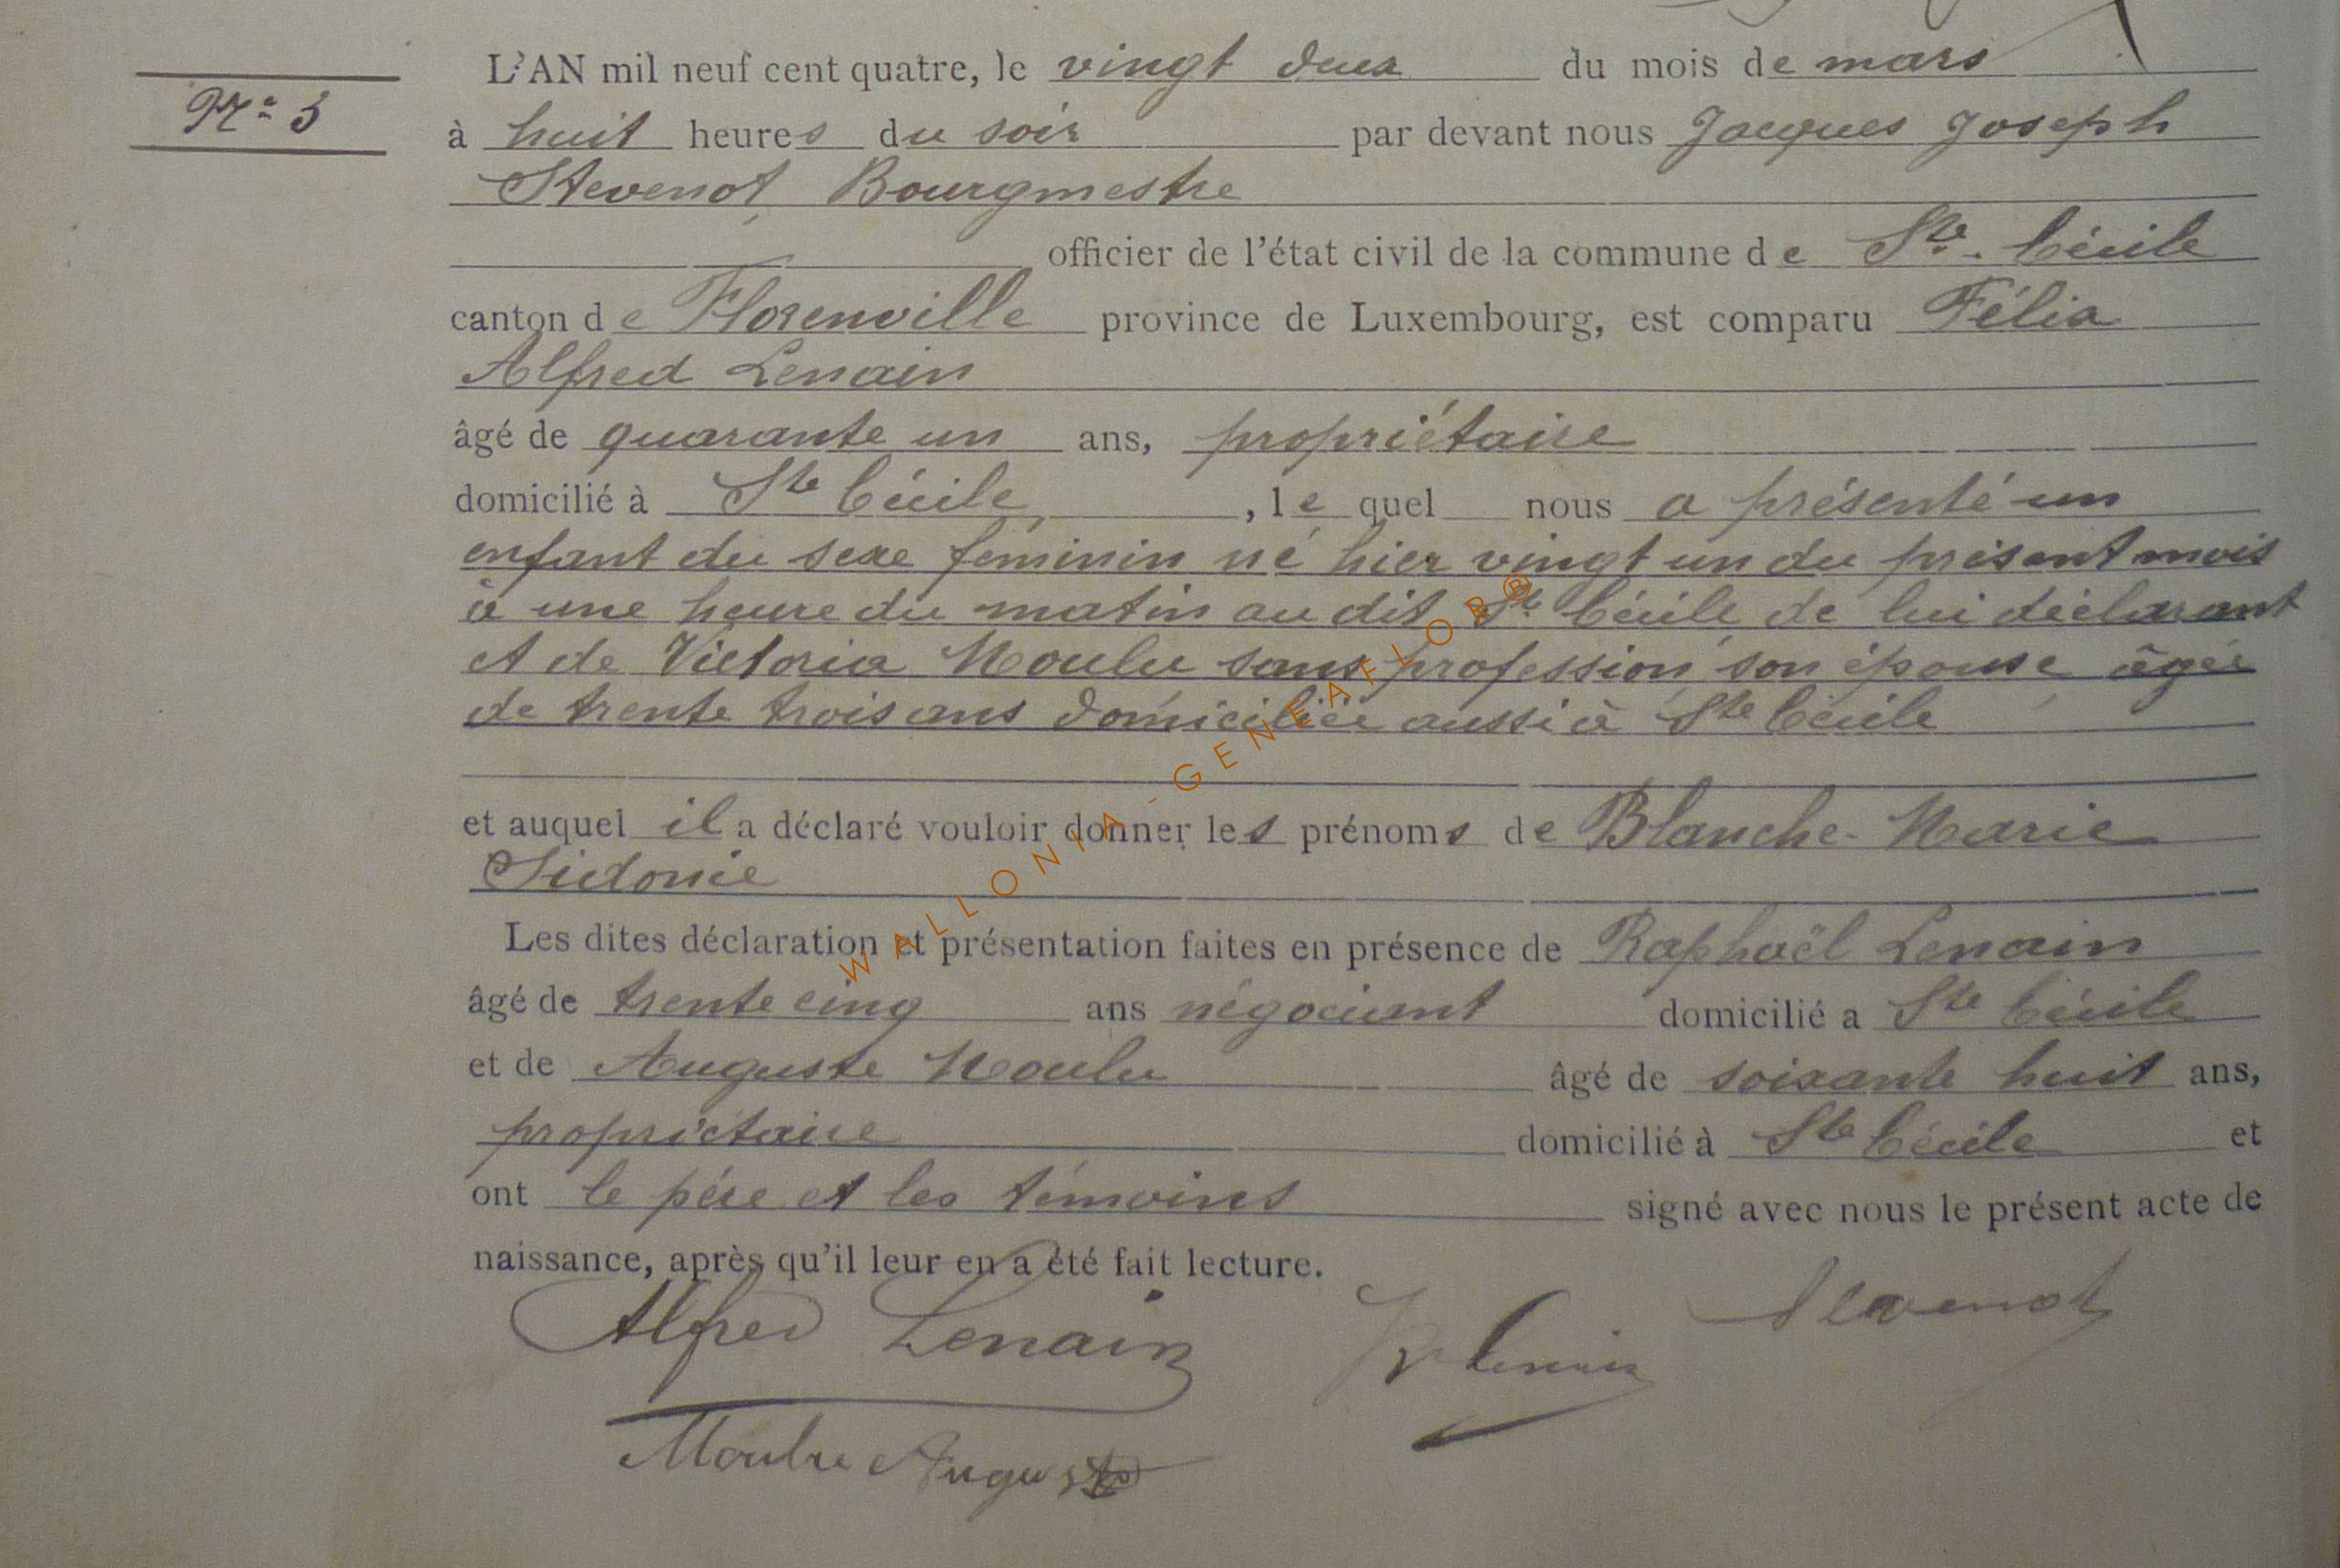 L'AN mil neuf cent quatre, le vingt deux du mois de mars
N° 3
à huit heures du soir par devant nous Jacques Joseph
Stevenot Bourgmestre
officier de l'état civil de la commune de Ste. Cécile
canton de Florenville province de Luxembourg, est comparu Félix
Alfred Lenain
âgé de quarante un ans, propriétaire
domicilié à Ste Cécile, lequel nous a présenté un
enfant du sexe féminin né hier vingt un du présent mois
à une heure du matin au dit Ste Cécile de lui déclarant
et de Victoria Moulu sans profession son épouse âgée
de trente trois ans domiciliée aussi à Ste Cécile
et auquel il a déclaré vouloir donner les prénoms de Blanche-Marie
Sidonie
Les dites déclaration et présentation faites en présence de Raphaël Lenain
âgé de trente cinq ans négociant domicilié a Ste Cécile
et de Auguste Moulu âgé de soixante huit ans,
propriétaire domicilié à Ste Cécile et
ont le père et les témoins signé avec nous le présent acte de
naissance, après qu'il leur en a été fait lecture.
Alfred Lenain R Lenain Stevenot
Moulu Auguste
WALLONIA-GENEAFLOR®